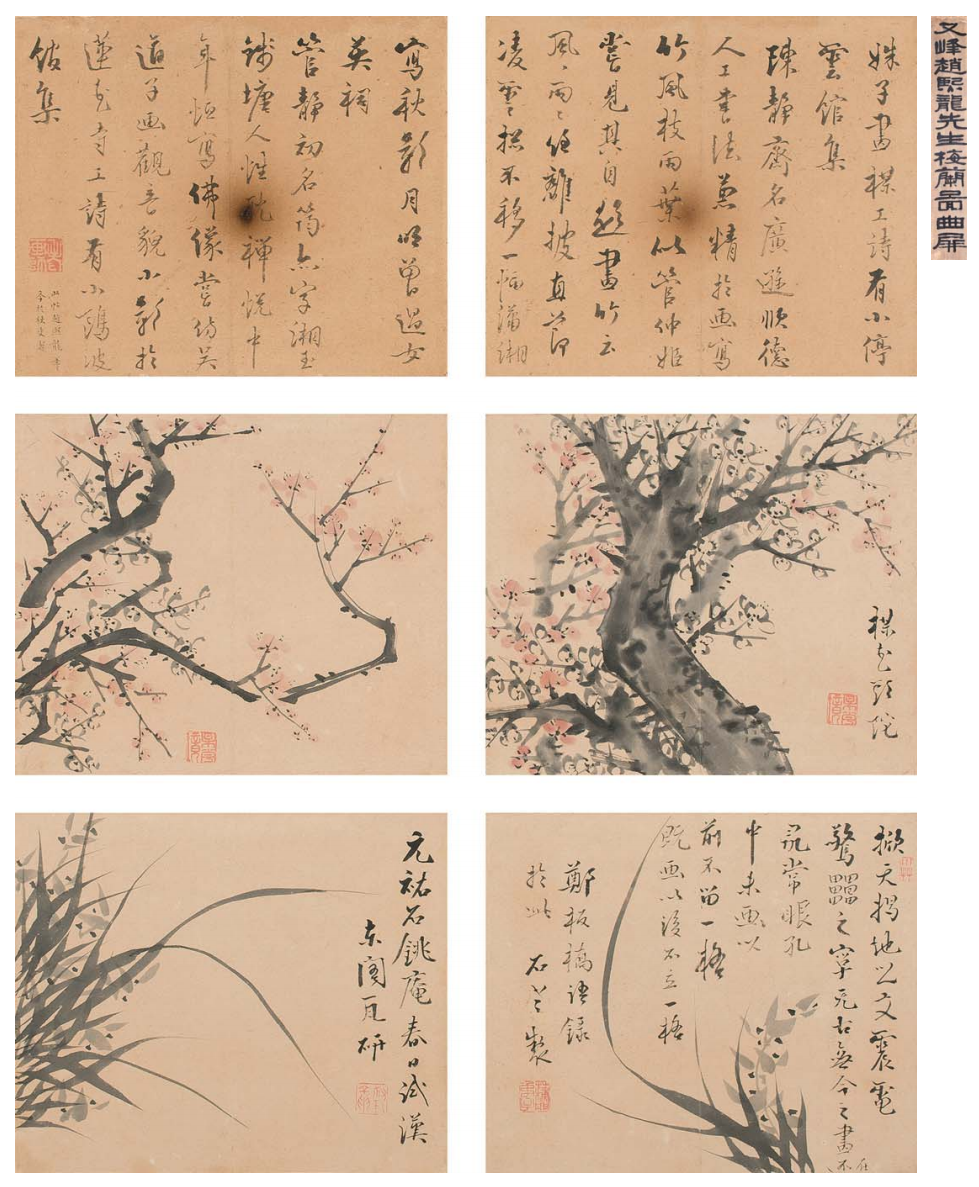 又峰趙熙龍先生梅蘭品曲屏
姝子畫禖工詩有小停
雲館集
陳靜齋名廣遜順德
人工書法兼精於画寫
竹風枝雨葉以管仲姬
嘗見其自題畫竹云
風〻雨〻任離披直節
凌雲揔不移一幅瀟湘
寫秋影月明曾過女
英祠
管靜初名筠亦字湘玉
錢塘人性耽禪悦中
年恒寫佛像嘗仿吴
道子画觀音貌小影於
蓮花寺工詩有小鷗波
館集
禖花頭陀
掀天揭地之文震電
驚雷之字无古無今之畫
原不在
尋常眼孔
中未画以
前不留一格
既画以後不立一格
鄭板橋语録
於此 石
元祐石銚庵春日試漢
東閣瓦研